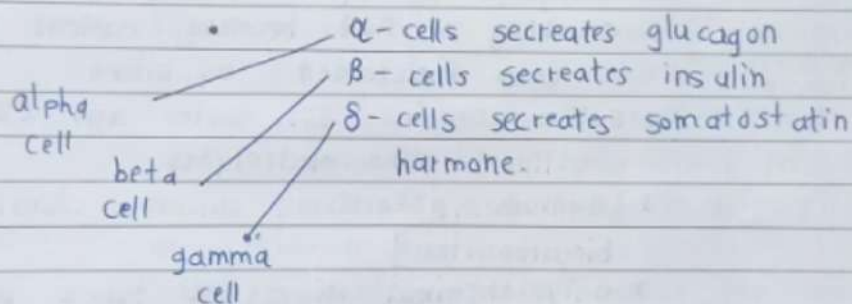 α - cells secreates glucagon
β - cells secreates insulin
δ - cells secreates somatostatin
harmone.
alpha
cell
beta
cell
gamma
cell